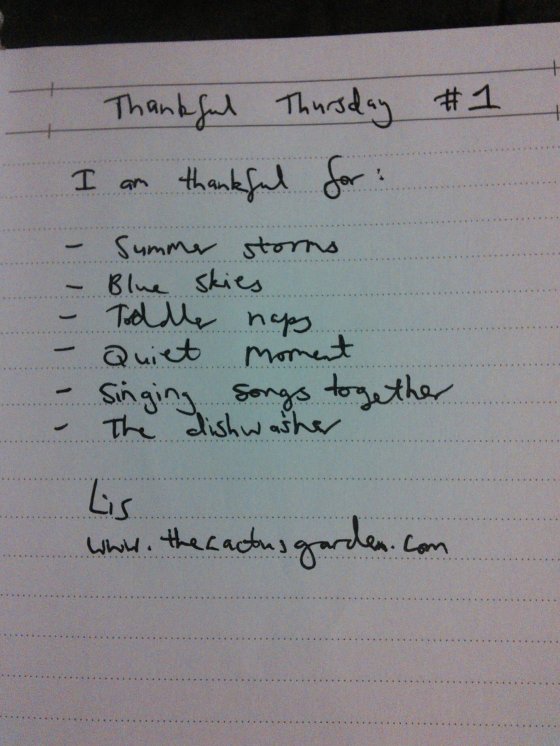 Thankful Thursday #1
I am thankful for:
- Summer storms
- Blue skies
- Toddler naps
- Quiet moment
- Singing songs together
- The dishwasher
Lis
www.thecactusgarden.com